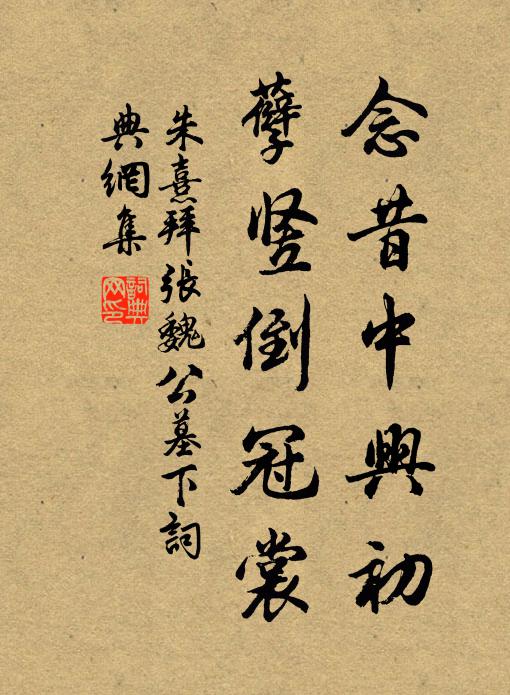 念昔中興初
孽豎倒冠裳
朱熹拜張魏公墓下詞
典網集
詞典網印